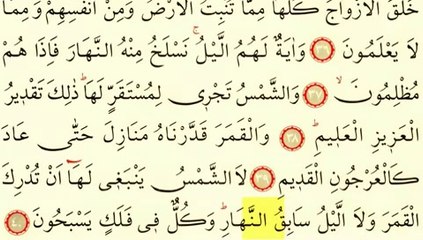 خَلَقَ الْاَزْوَاجَ كُلَّهَا مِمَّا تُنْبِتُ الْاَرْضُ وَمِنْ اَنْفُسِهِمْ وَمِمَّا
لَا يَعْلَمُونَ ﴿٣٦﴾ وَاٰيَةٌ لَهُمُ الَّيْلُۚ نَسْلَخُ مِنْهُ النَّهَارَ فَاِذَا هُمْ
مُظْلِمُونَۙ ﴿٣٧﴾ وَالشَّمْسُ تَجْر۪ي لِمُسْتَقَرٍّ لَهَاۜ ذٰلِكَ تَقْد۪يرُ
الْعَز۪يزِ الْعَل۪يمِۜ ﴿٣٨﴾ وَالْقَمَرَ قَدَّرْنَاهُ مَنَازِلَ حَتّٰى عَادَ
كَالْعُرْجُونِ الْقَد۪يمِ ﴿٣٩﴾ لَا الشَّمْسُ يَنْبَغ۪ي لَهَٓا اَنْ تُدْرِكَ
الْقَمَرَ وَلَا الَّيْلُ سَابِقُ النَّهَارِۜ وَكُلٌّ ف۪ي فَلَكٍ يَسْبَحُونَ ﴿٤٠﴾